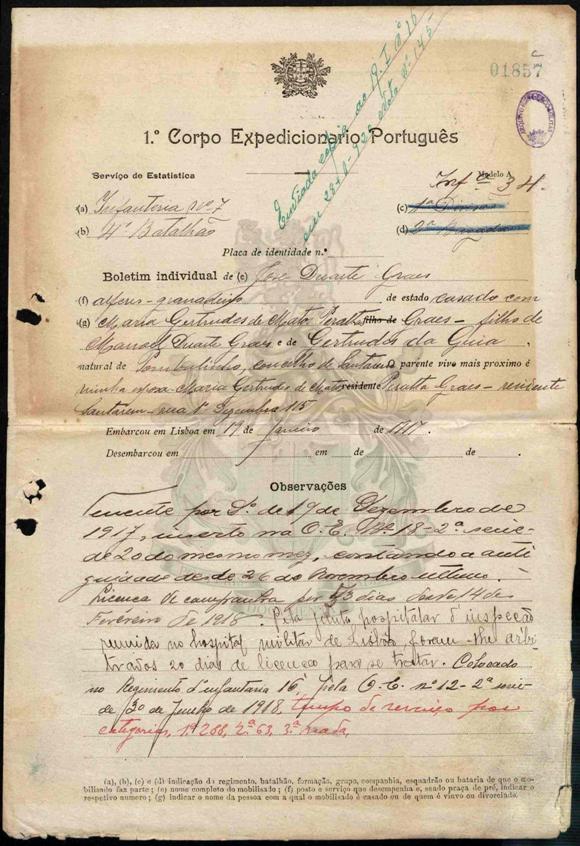 01857
1.º Corpo Expedicionario Português
Enviada copia ao
em
Serviço de Estatistica
Modelo A
Infª 34
(a) Infantaria nº 7
(c) 1ª
(b) 4º Batalhão
(d) 2ª
Placa de identidade n.º
Boletim individual de (e) José Duarte Graes
(f) alferes-granadeiro de estado casado com
(g) Maria Gertrudes de Mato Peralta filho de Graes - filho de
Manoel Duarte Graes e de Gertrudes da Guia
natural de Pombalinho, concelho de Santarem O parente vivo mais proximo é
minha esposa Maria Gertrudes de Mato residente Peralta Graes - residente
Santarem - rua 1º Dezembro 115
Embarcou em Lisboa em 19 de Janeiro de 1917.
Desembarcou em em de de
Observações
Tenente por D. de 19 de Dezembro de
1917, inserto na O.E. nº 18-2ª serie
de 20 do mesmo mez, contando a anti
guidade desde 26 de Novembro ultimo.
Licença de campanha por 53 dias desde 14 de
Fevereiro de 1918. Pela junta hospitalar d'inspecção
reunida no hospital militar de Lisboa, foram-lhe arbi
trados 20 dias de licença para se tratar. Colocado
no Regimento d'infantaria 16 pela O.E. nº 12-2ª serie
de 30 de Junho de 1918. tempo de serviço por
categorias, 1ª 288, 2ª 63, 3ª nada,
(a), (b), (c) e (d) indicação do regimento, batalhão, formação, grupo, companhia, esquadrão ou bataria de que o mo-
bilisando faz parte; (e) nome completo do mobilisado; (f) posto e serviço que desempenha e, sendo praça de pré, indicar o
respetivo numero; (g) indicar o nome da pessoa com a qual o mobilisado é casado ou de quem é viuvo ou divorciado.